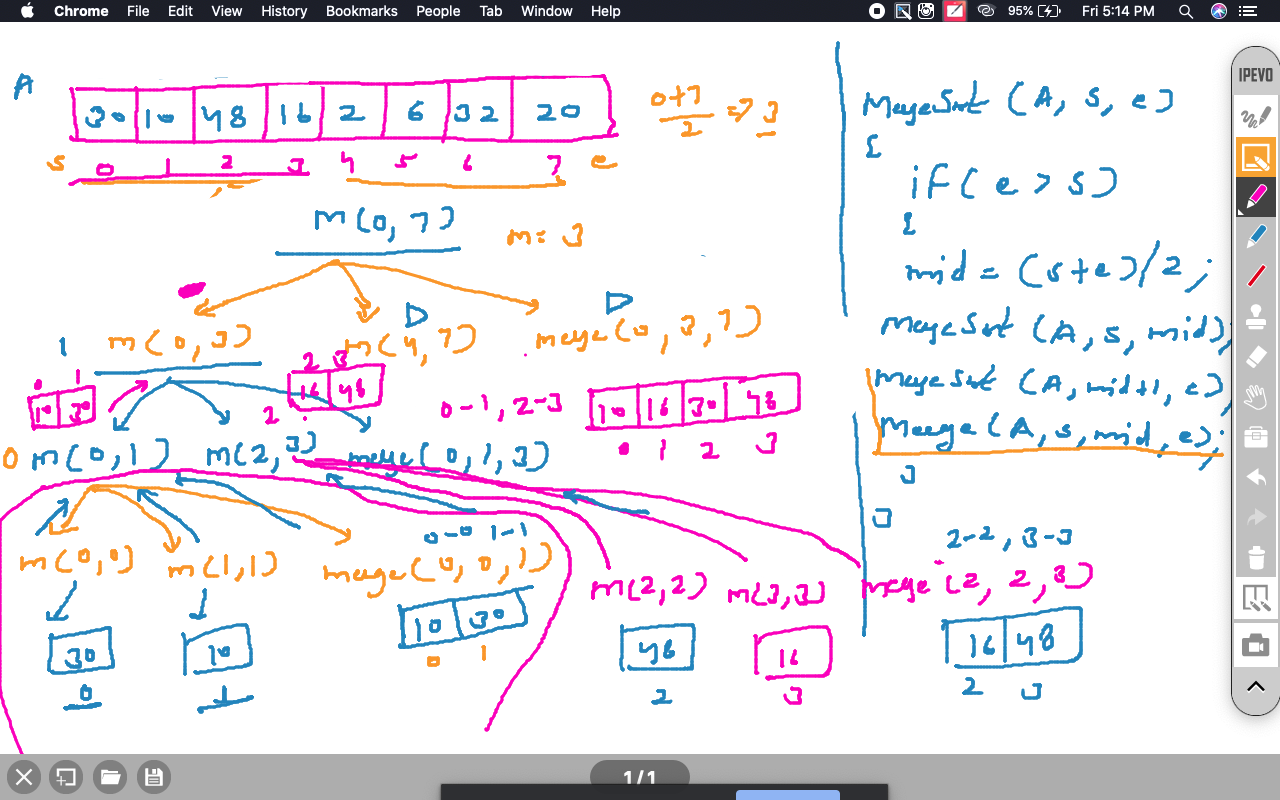 Chrome File Edit View History Bookmarks People Tab Window Help 95% Fri 5:14 PM
IPEVO
A
30 10 48 16 2 6 32 20
s 0 1 2 3 4 5 6 7 e
0+7/2 => 3
m(0, 7)
m = 3
m(0, 3) m(4, 7) merge(0, 3, 7)
1
0 1
10 30
2 3
16 48
2
0-1, 2-3
10 16 30 48
0 1 2 3
0 m(0, 1) m(2, 3) merge(0, 1, 3)
0-0 1-1
m(0, 0) m(1, 1) merge(0, 0, 1)
30
0
10
1
10 30
0 1
m(2, 2) m(3, 3) merge(2, 2, 3)
48
2
16
3
2-2, 3-3
16 48
2 3
MergeSort (A, s, e)
{
if(e > s)
{
mid = (s+e)/2;
MergeSort (A, s, mid);
MergeSort (A, mid+1, e)
Merge(A, s, mid, e);
}
}
1/1